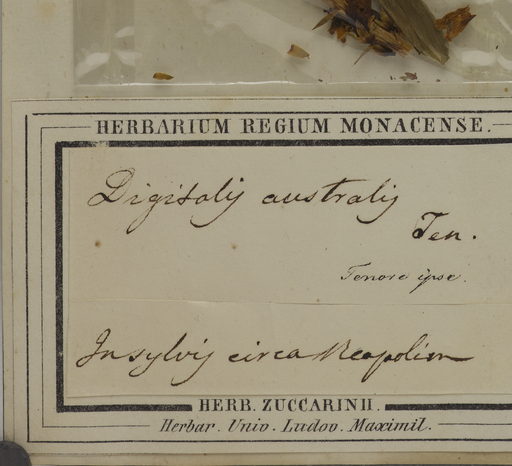 HERBARIUM REGIUM MONACENSE.
Digitalis australis
Ten.
Tenore ipse.
In sylvis circa Neapolim
HERB. ZUCCARINII.
Herbar. Univ. Ludov. Maximil.